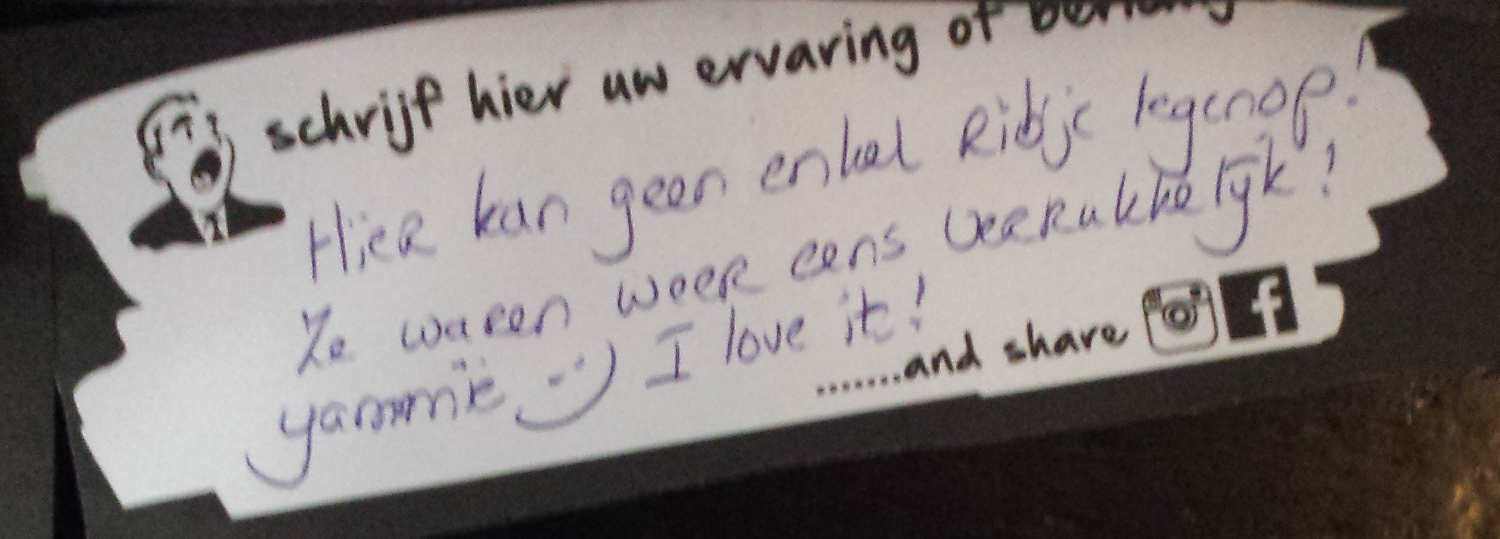 schrijf hier uw ervaring of
Hier kan geen enkel Ribje tegenop!
Ze waren weer eens verrukkelijk!
yammië :-) I love it!
.......and share f